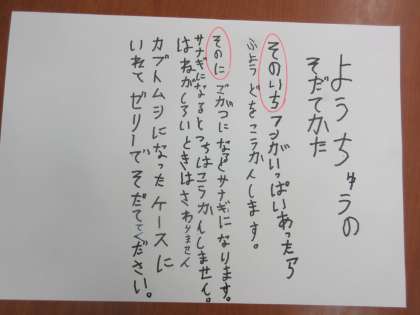 ようちゅうの
そだてかた
そのいち フンがいっぱいあったら
ふようどをこうかんします。
そのに ごがつになるとサナギになります。
サナギになるとつちはこうかんしません。
はねがしろいときはさわりません
カブトムシになったらケースに
いれて ゼリーで そだててください。